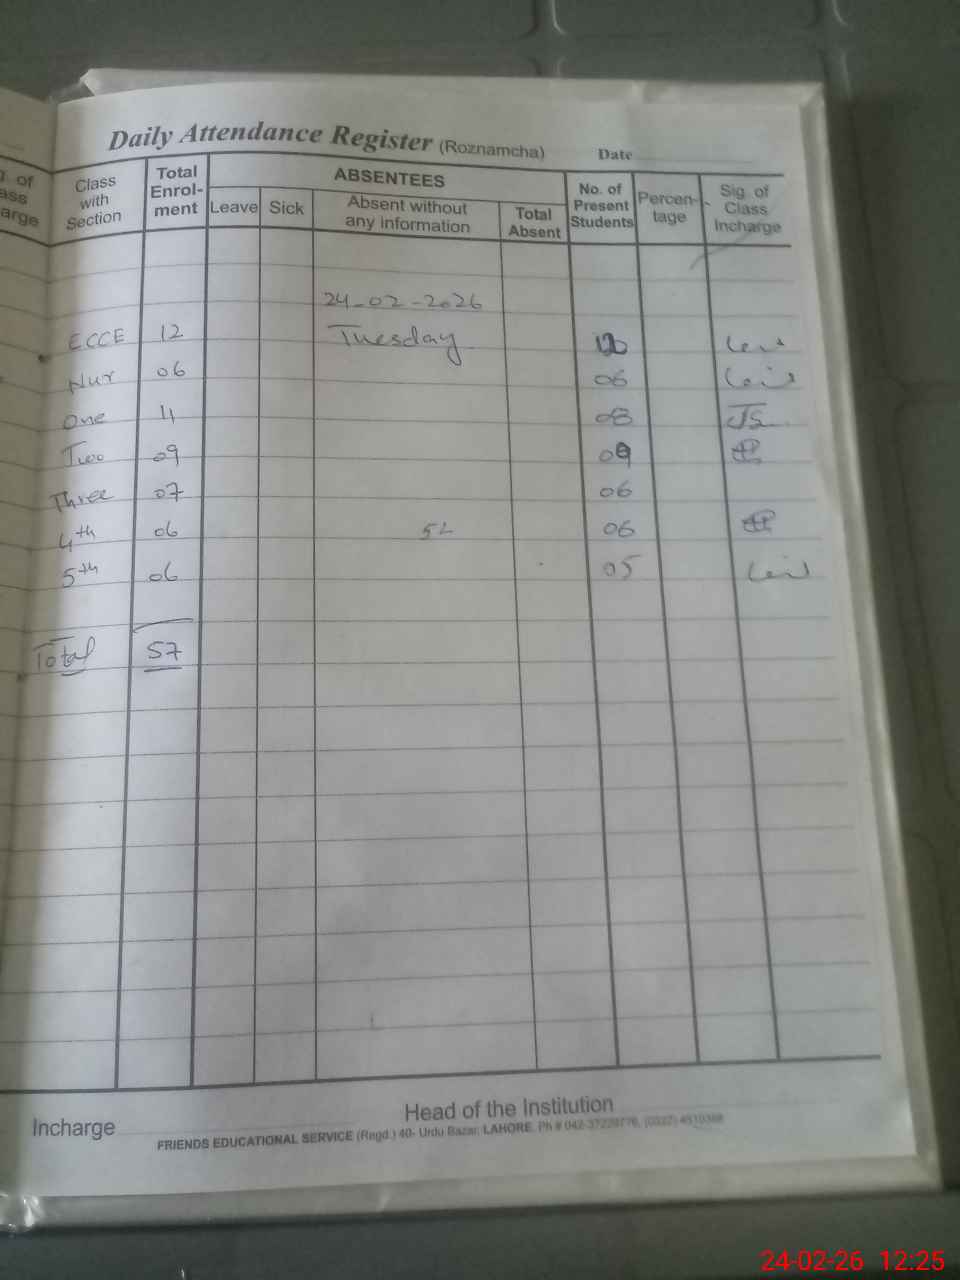 Daily Attendance Register (Roznamcha) Date
Class with Section Total Enrol-ment ABSENTEES No. of Present Students Percen-tage Sig. of Class Incharge
Leave Sick Absent without any information Total Absent
24-02-2026
ECCE 12 Tuesday
Nur 06 06
One 11 08
Two 09 09
Three 07 06
4th 06 54 06
5th 06 05
Total 57
Incharge Head of the Institution
FRIENDS EDUCATIONAL SERVICE (Regd.) 40- Urdu Bazar, LAHORE. Ph # 042-37229776,
24-02-26 12:25